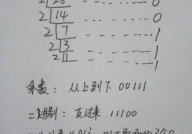 2 28 0
2 14 0
2 7 1
2 3 1
2 1 1
余数：从上到下 00111
二进制：反过来 11100